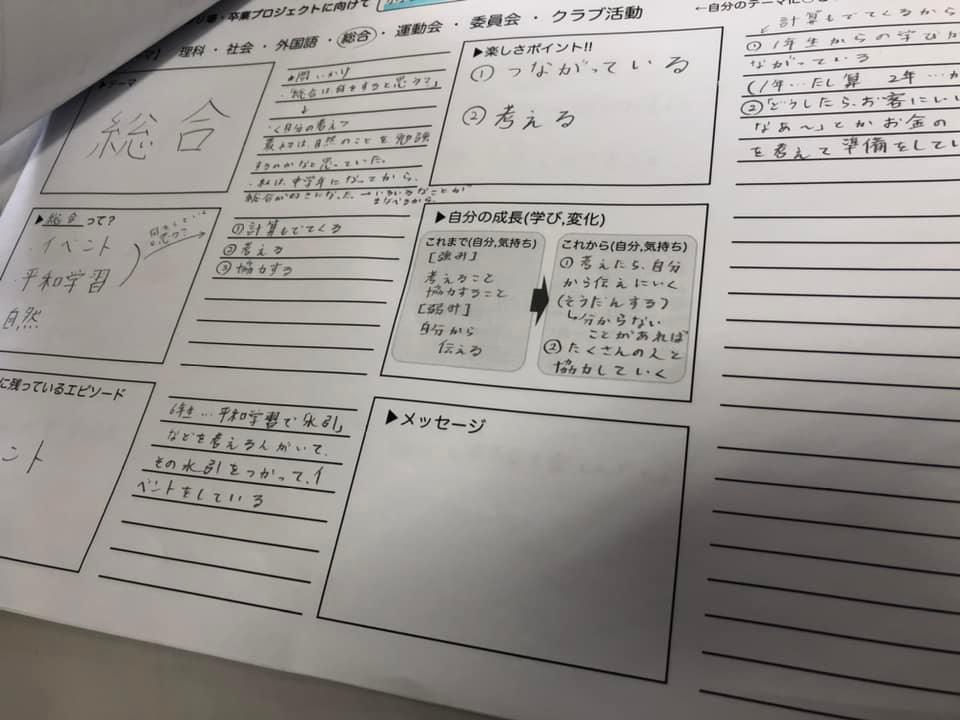 卒業プロジェクトに向けて
←自分のテーマに
理科・社会・外国語・総合・運動会・委員会・クラブ活動
▶テーマ
総合
・問いかけ
「総合は何をすると思う？」
↓
・<自分の考え>
最初は、自然のことを勉強
するのかなと思っていた。
・私は、中学年になってから、
総合が好きになった。→いろいろなことが
学べるから。
▶総合って？
・イベント
平和学習
自然
①計算もでてくる
②考える
③協力する
に残っているエピソード
ント
6年生…平和学習で「水引」
などを考える人がいて、
その水引をつかって、イ
ベントをしている
▶楽しさポイント!!
①つながっている
②考える
▶自分の成長(学び,変化)
これまで(自分,気持ち)
[強み]
考えること
協力すること
[弱み]
自分から
伝える
これから(自分,気持ち)
①考えたら、自分
から伝えにいく
(そうだんする)
↳分からない
ことがあれば
②たくさんの人と
協力していく
▶メッセージ
計算もでてくるから
①1年生からの学びが
ながっている
(1年…たし算 2年…か
②「どうしたら、お客にいい
なぁ～」とかお金の
を考えて準備をしてい